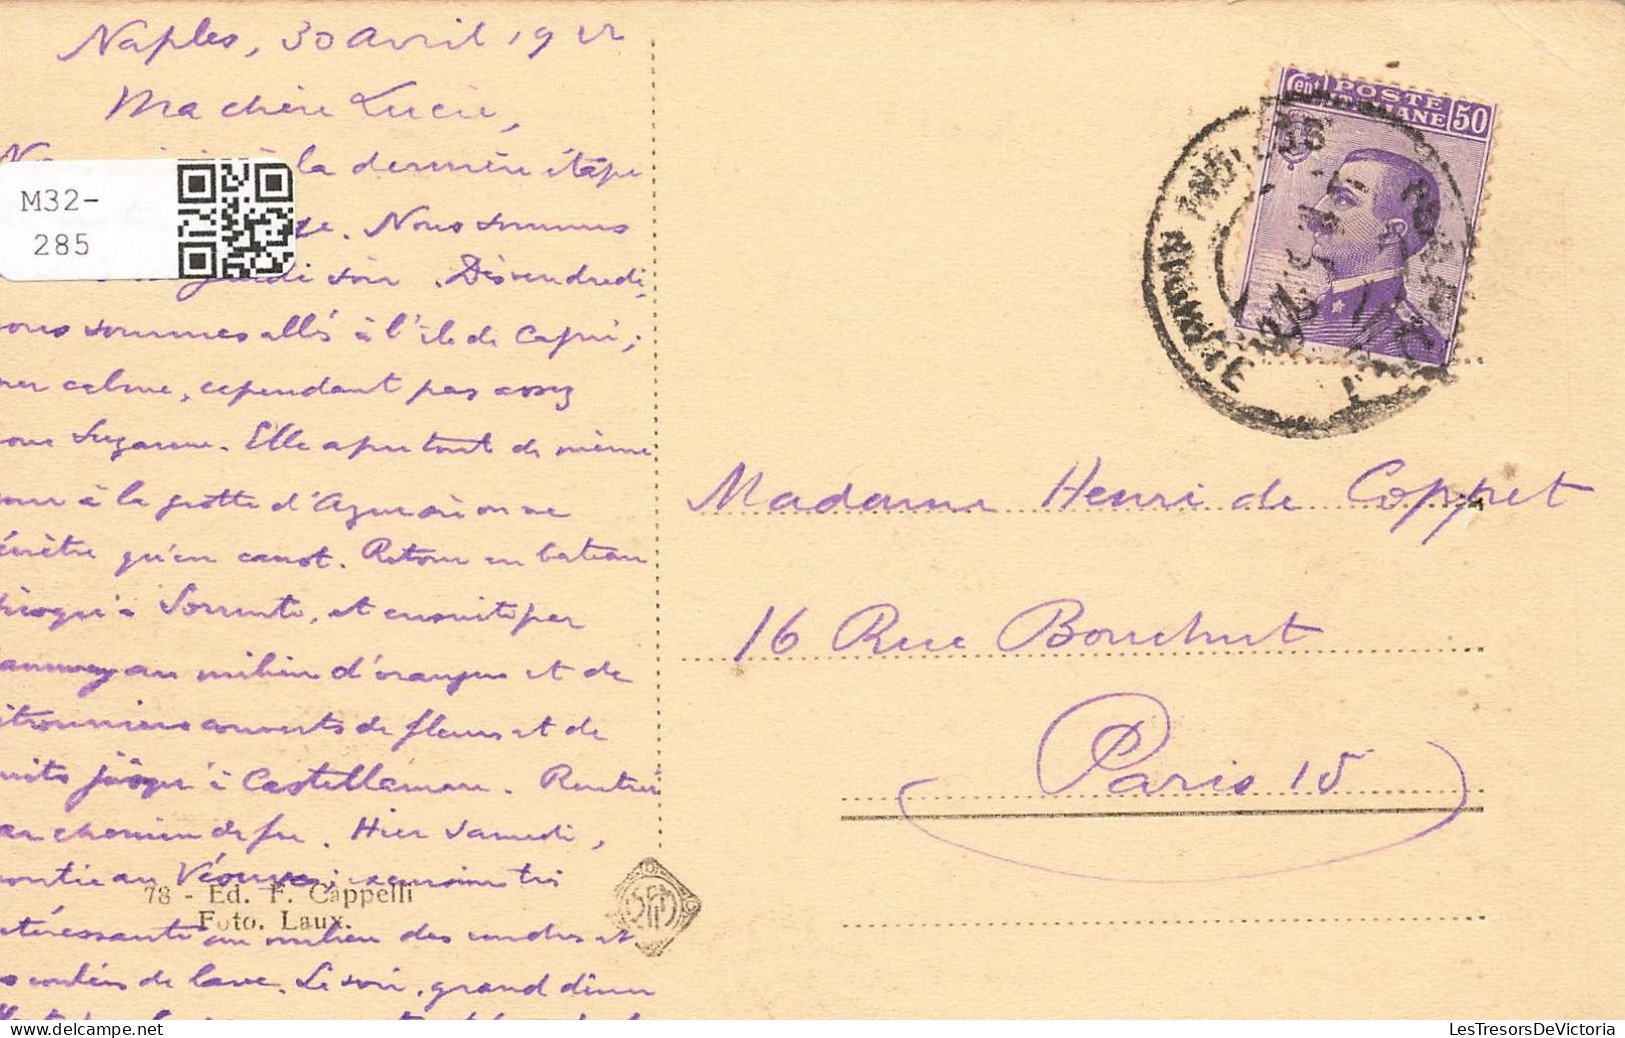 Naples, 30 avril 1922
Ma chère Lucie,
à la dernière étape
Nous sommes
jeudi soir. Dès vendredi,
nous sommes allés à l'île de Capri;
mer calme, cependant pas assez
pour Suzanne. Elle a pu tout de même
à la grotte d'Azur où on ne
pénètre qu'en canot. Retour en bateau
jusqu'à Sorrente, et ensuite par
au milieu d'orangers et de
citronniers couverts de fleurs et de
fruits jusqu'à Castellamare. Rentrés
par chemin de fer. Hier samedi,
sortie au Vésuve; excursion très
intéressante au milieu des cendres et
coulées de lave. Le soir, grand dîner
78 - Ed. F. Cappelli
Foto. Laux.
M32-
285
Cent 50
POSTE
ITALIANE
Madame Henri de Coppet
16 Rue Bouchut
Paris 15
LesTresorsDeVictoria.com